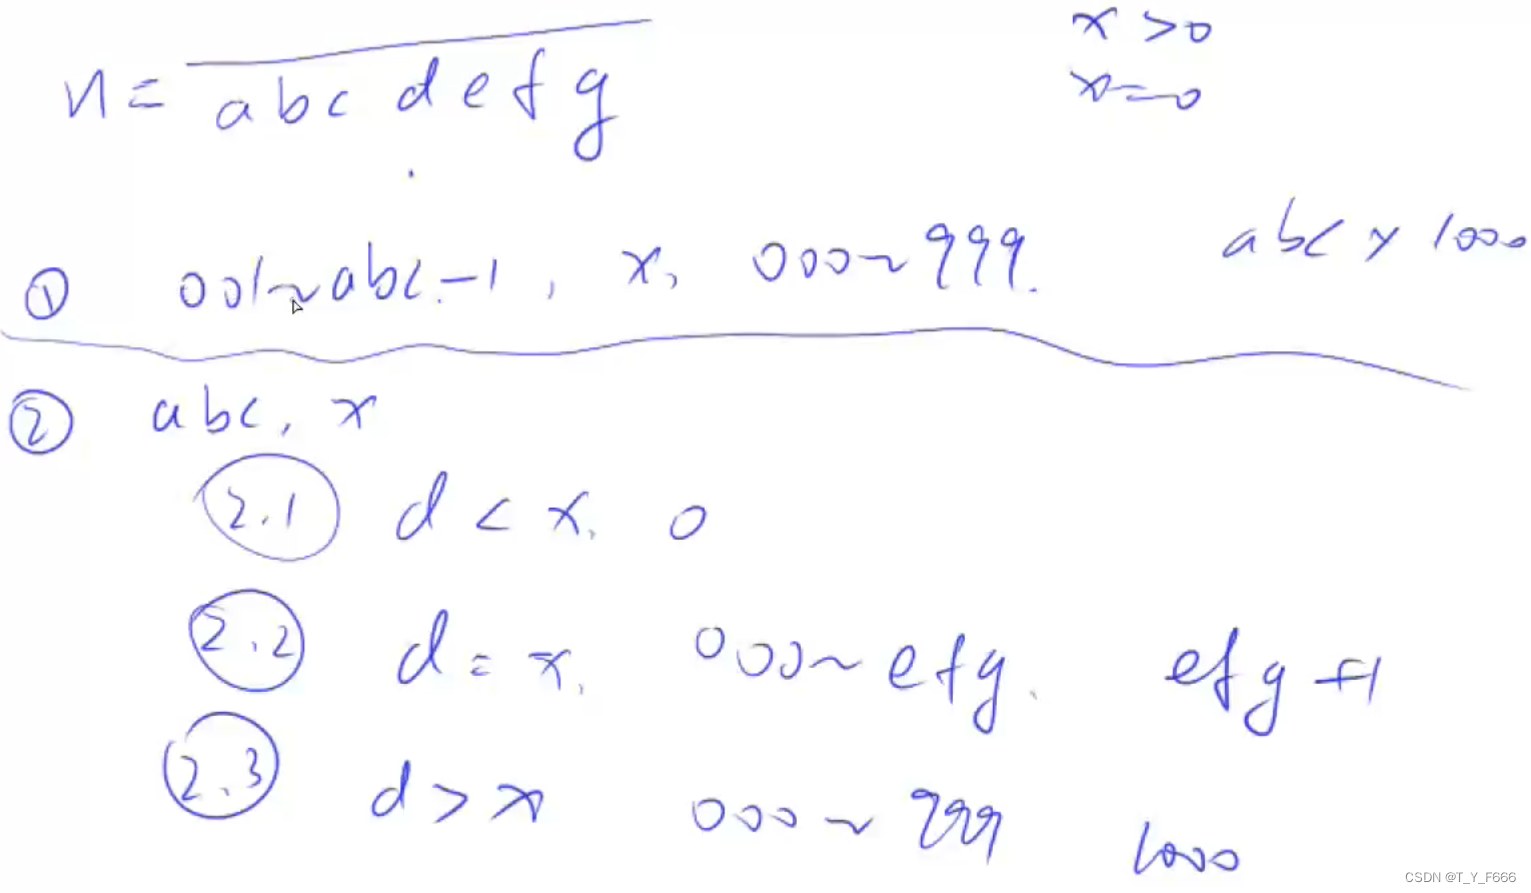 x > 0
n = abcdefg
x = 0
abc x 1000
① 001~abc-1, x, 000~999.
② abc, x
2.1 d < x, 0
2.2 d = x, 000~efg. efg+1
2.3 d > x 000~999 1000
CSDN @T_Y_F666